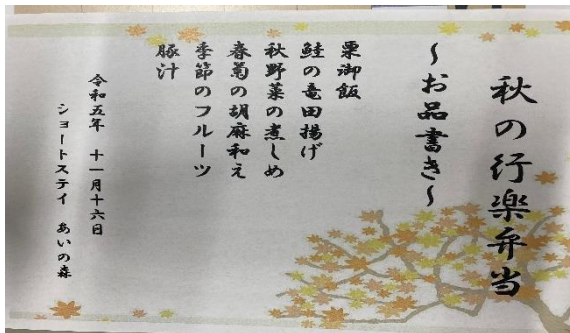 秋の行楽弁当
～お品書き～
栗御飯
鮭の竜田揚げ
秋野菜の煮しめ
春菊の胡麻和え
季節のフルーツ
豚汁
令和五年　十一月十六日
ショートステイ　あいの森